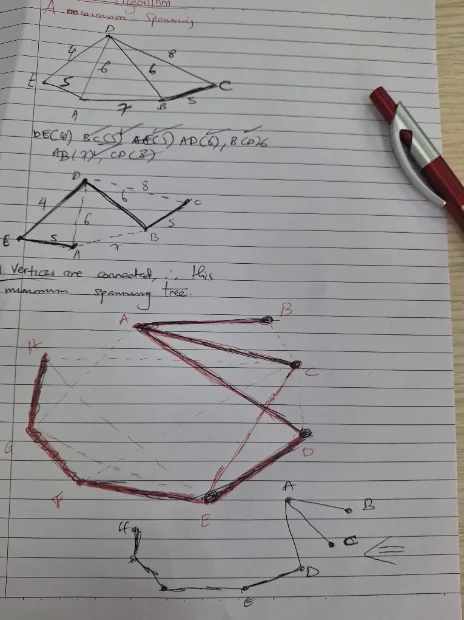 Algorithm
A minimum Spanning
D
4
8
E
5
6
6
C
A
7
B
5
DE(4) BC(5) AE(5) AD(6), B(D)6
AB(7), CD(8)
D
8
6
C
4
6
5
B
E
5
A
7
vertices are connected, ∴ this
minimum spanning tree.
A
B
H
C
G
D
F
E
A
B
H
C
D